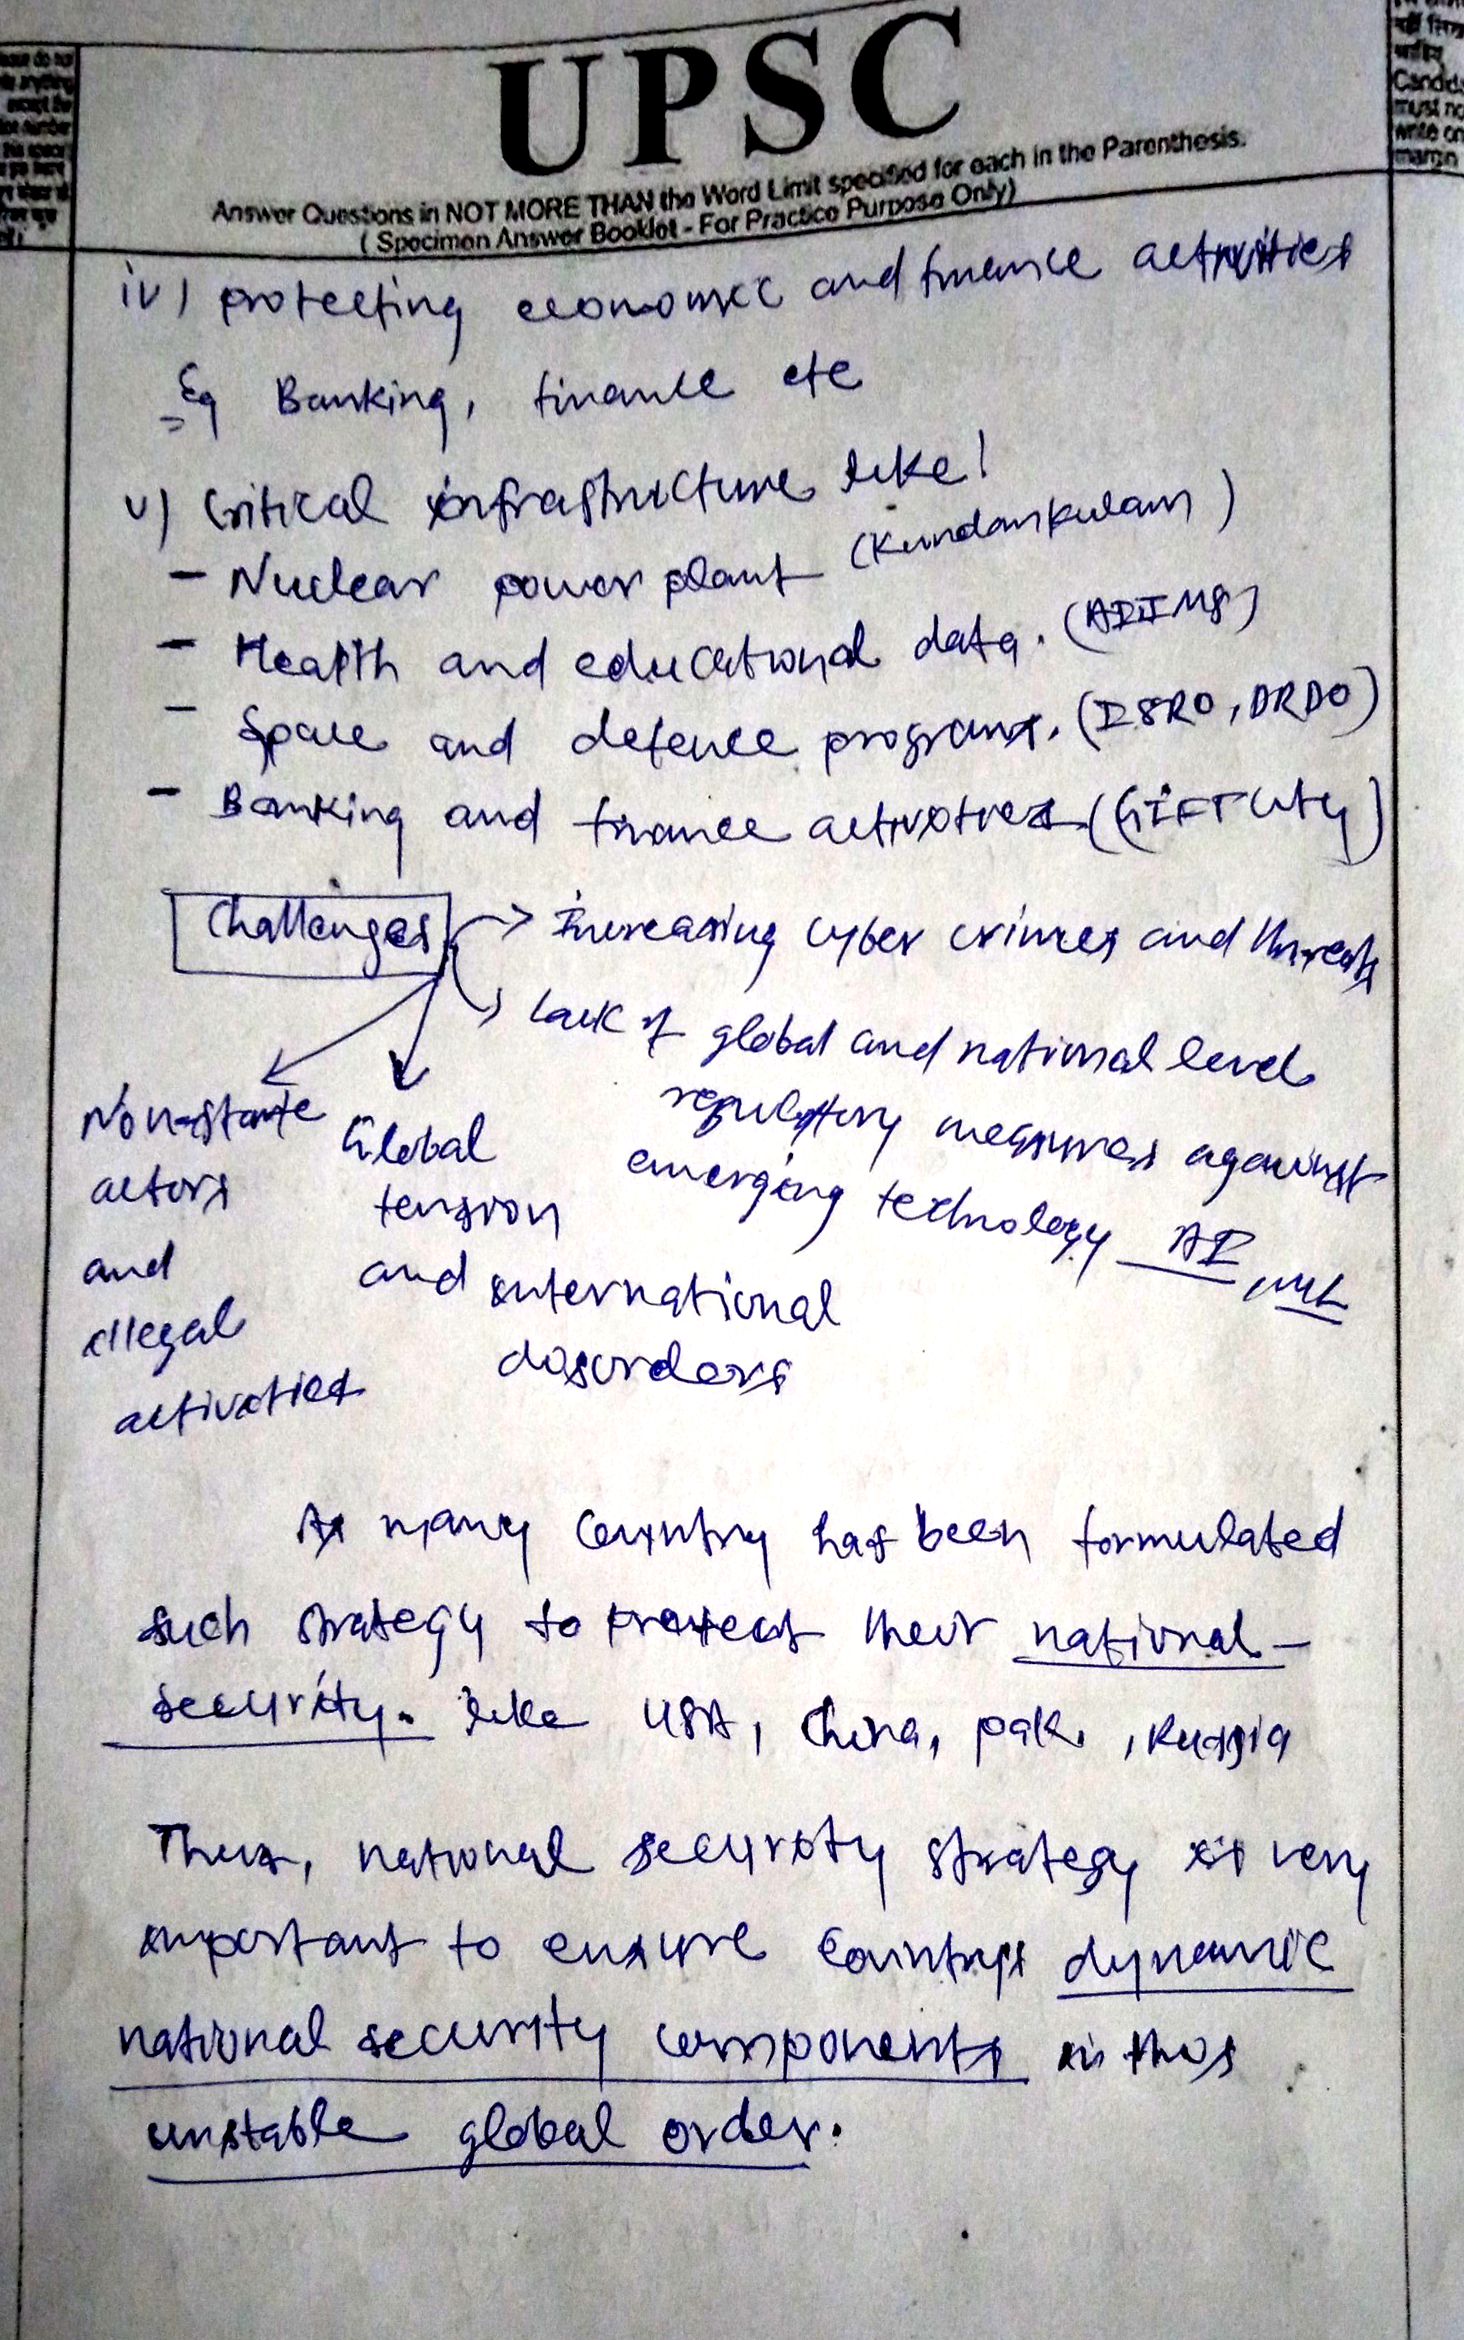 UPSC
Answer Questions in NOT MORE THAN the Word Limit specified for each in the Parenthesis.
( Specimen Answer Booklet - For Practice Purpose Only)
Candida
must no
write on
margin
iv) protecting economic and finance activities
Eg Banking, finance etc
v) Critical infrastructure like!
- Nuclear power plant (Kundankulam)
- Health and educational data. (AIIMS)
- Space and defence programs. (ISRO, DRDO)
- Banking and finance activities (GIFT City)
Challenges
→ Increasing cyber crimes and threats
→ Lack of global and national level
regulatory measures against
emerging technology AI, ML
Non-state
actors
and
illegal
activities
Global
tension
and international
disorders
As many country has been formulated
such strategy to protect their national-
security. like USA, China, pak., Russia
Thus, national security strategy is very
important to ensure countrys dynamic
national security components in this
unstable global order.